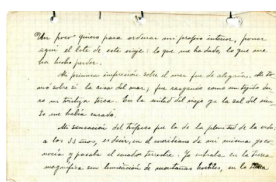 Un poco quiero para ordenar mi propio interior, poner
aquí el lote de este viaje: lo que me ha dado, lo que me
ha hecho perder.
Mi primera impresión sobre el mar fue de alegría. Me
solo si la brisa del mar, fue rasgando como un tejido
mi trabajo. En la mitad del viaje ya la sal del
me había curado.
Mi sensación del trópico fue la de la plenitud de la vida,
a los 33 años, es decir, en el meridiano de mi misma
y pasaba el ecuador terrestre. Yo entraba en la tierra
magnífica con bendición de montañas hostiles, en la